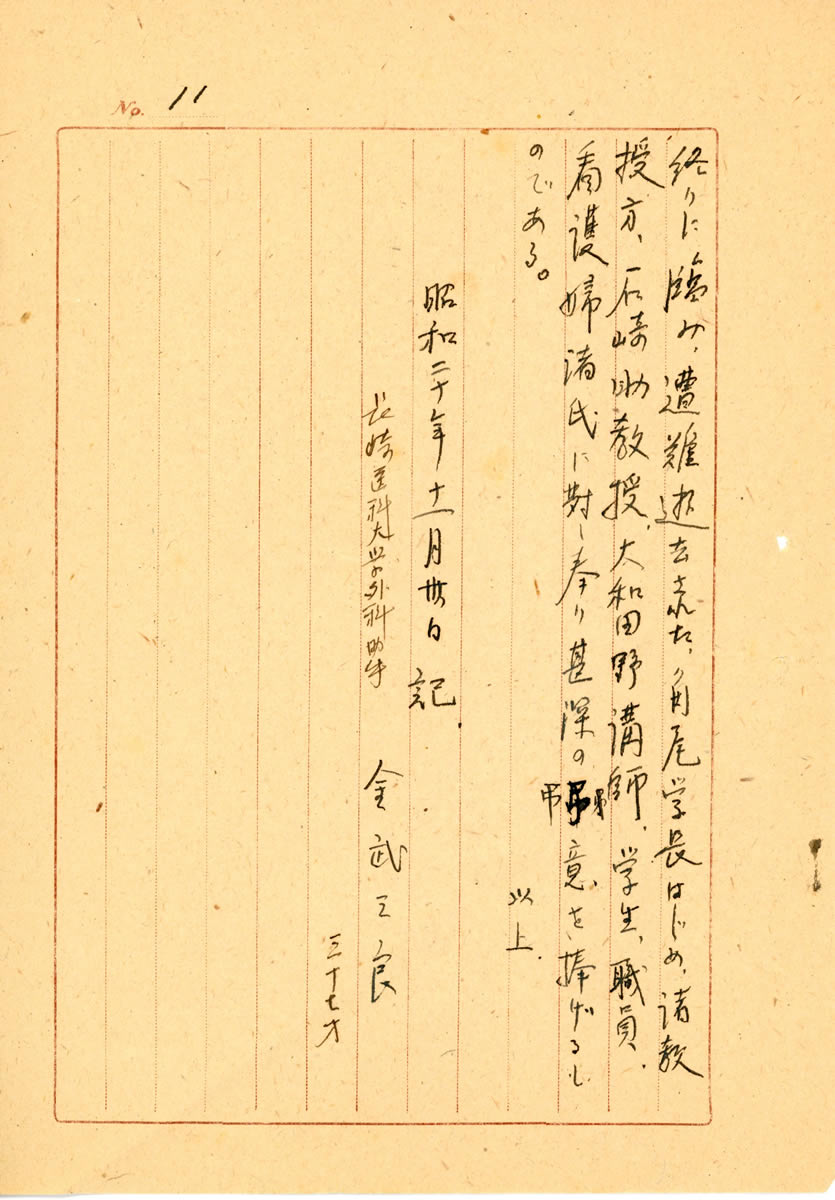 No. 11
終りに臨み、遭難逝去された、角尾学長はじめ、諸教
授方、石崎助教授、大和田野講師、学生、職員、
看護婦諸氏に對し奉り甚深の弔意を捧げるも
のである。
以上.
昭和二十年十一月卅日 記.
長崎医科大学外科助手
金武三良
三十七才